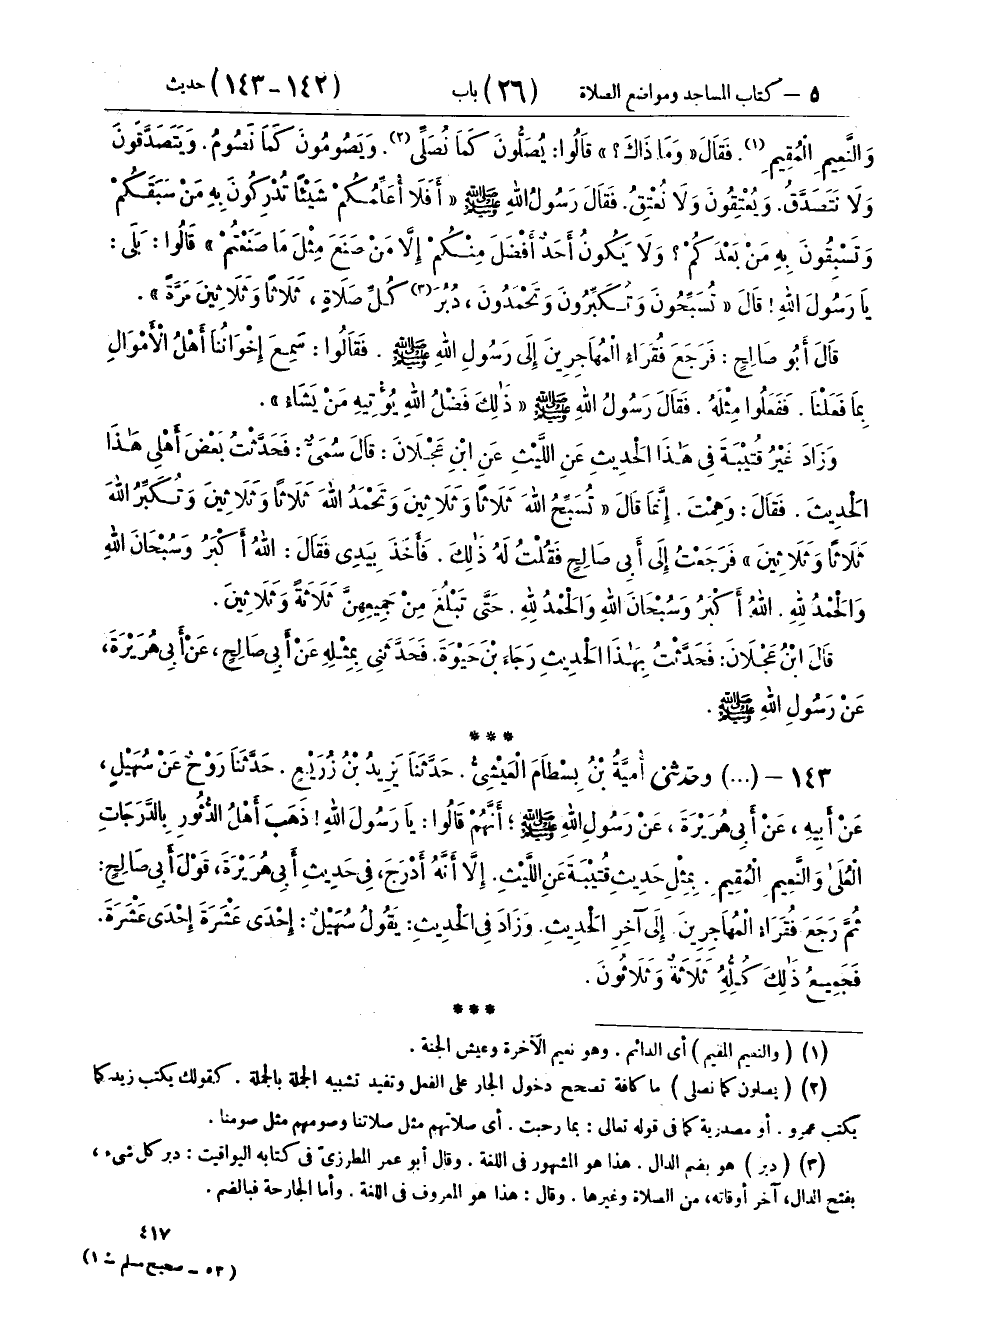 ٥ – كتاب المساجد ومواضع الصلاة (٢٦) باب (١٤٢-١٤٣) حديث
وَالنَّعِيمِ الْمُقِيمِ (١). فَقَالَ « وَمَا ذَاكَ؟ » قَالُوا: يُصَلُّونَ كَمَا نُصَلِّى (٢). وَيَصُومُونَ كَمَا نَصُومُ. وَيَتَصَدَّقُونَ
وَلَا نَتَصَدَّقُ. وَيُعْتِقُونَ وَلَا نُعْتِقُ. فَقَالَ رَسُولُ اللهِ ﷺ « أَفَلَا أُعَلِّمُكُمْ شَيْئًا تُدْرِكُونَ بِهِ مَنْ سَبَقَكُمْ
وَتَسْبِقُونَ بِهِ مَنْ بَعْدَكُمْ؟ وَلَا يَكُونُ أَحَدٌ أَفْضَلَ مِنْكُمْ إِلَّا مَنْ صَنَعَ مِثْلَ مَا صَنَعْتُمْ » قَالُوا: بَلَى:
يَا رَسُولَ اللهِ! قَالَ « تُسَبِّحُونَ وَتُكَبِّرُونَ وَتَحْمَدُونَ، دُبُرَ (٣) كُلِّ صَلَاةٍ، ثَلَاثًا وَثَلَاثِينَ مَرَّةً ».
قَالَ أَبُو صَالِحٍ: فَرَجَعَ فُقَرَاءُ الْمُهَاجِرِينَ إِلَى رَسُولِ اللهِ ﷺ. فَقَالُوا: سَمِعَ إِخْوَانُنَا أَهْلُ الْأَمْوَالِ
بِمَا فَعَلْنَا. فَفَعَلُوا مِثْلَهُ. فَقَالَ رَسُولُ اللهِ ﷺ « ذَٰلِكَ فَضْلُ اللهِ يُؤْتِيهِ مَنْ يَشَاءُ ».
وَزَادَ غَيْرُ قُتَيْبَةَ فِى هَٰذَا الْحَدِيثِ عَنِ اللَّيْثِ عَنِ ابْنِ عَجْلَانَ: قَالَ سُمَىٌّ: فَحَدَّثْتُ بَعْضَ أَهْلِى هَٰذَا
الْحَدِيثَ. فَقَالَ: وَهِمْتَ. إِنَّمَا قَالَ « تُسَبِّحُ اللهَ ثَلَاثًا وَثَلَاثِينَ وَتَحْمَدُ اللهَ ثَلَاثًا وَثَلَاثِينَ وَتُكَبِّرُ اللهَ
ثَلَاثًا وَثَلَاثِينَ » فَرَجَعْتُ إِلَى أَبِى صَالِحٍ فَقُلْتُ لَهُ ذَٰلِكَ. فَأَخَذَ بِيَدِى فَقَالَ: اللهُ أَكْبَرُ وَسُبْحَانَ اللهِ
وَالْحَمْدُ لِلهِ. اللهُ أَكْبَرُ وَسُبْحَانَ اللهِ وَالْحَمْدُ لِلهِ. حَتَّى تَبْلُغَ مِنْ جَمِيعِهِنَّ ثَلَاثَةً وَثَلَاثِينَ.
قَالَ ابْنُ عَجْلَانَ: فَحَدَّثْتُ بِهَٰذَا الْحَدِيثِ رَجَاءَ بْنَ حَيْوَةَ. فَحَدَّثَنِى بِمِثْلِهِ عَنْ أَبِى صَالِحٍ، عَنْ أَبِى هُرَيْرَةَ،
عَنْ رَسُولِ اللهِ ﷺ.
***
١٤٣ – (...) وحَدَّثَنِى أُمَيَّةُ بْنُ بِسْطَامَ الْعَيْشِىُّ. حَدَّثَنَا يَزِيدُ بْنُ زُرَيْعٍ. حَدَّثَنَا رَوْحٌ عَنْ سُهَيْلٍ،
عَنْ أَبِيهِ، عَنْ أَبِى هُرَيْرَةَ، عَنْ رَسُولِ اللهِ ﷺ؛ أَنَّهُمْ قَالُوا: يَا رَسُولَ اللهِ! ذَهَبَ أَهْلُ الدُّثُورِ بِالدَّرَجَاتِ
الْعُلَىٰ وَالنَّعِيمِ الْمُقِيمِ. بِمِثْلِ حَدِيثِ قُتَيْبَةَ عَنِ اللَّيْثِ. إِلَّا أَنَّهُ أَدْرَجَ، فِى حَدِيثِ أَبِى هُرَيْرَةَ، قَوْلَ أَبِى صَالِحٍ:
ثُمَّ رَجَعَ فُقَرَاءُ الْمُهَاجِرِينَ إِلَى آخِرِ الْحَدِيثِ. وَزَادَ فِى الْحَدِيثِ: يَقُولُ سُهَيْلٌ: إِحْدَى عَشْرَةَ إِحْدَى عَشْرَةَ.
فَجَمِيعُ ذَٰلِكَ كُلِّهِ ثَلَاثَةٌ وَثَلَاثُونَ.
***
(١) (والنعيم المقيم) أى الدائم. وهو نعيم الآخرة وعيش الجنة.
(٢) (يصلون كما نصلى) ما كافة تصحح دخول الجار على الفعل وتفيد تشبيه الجملة بالجملة. كقولك يكتب زيد كما
يكتب عمرو. أو مصدرية كما فى قوله تعالى: بما رحبت. أى صلاتهم مثل صلاتنا وصومهم مثل صومنا.
(٣) (دبر) هو بضم الدال. هذا هو المشهور فى اللغة. وقال أبو عمر المطرزىّ فى كتابه اليواقيت: دبر كل شىء،
بفتح الدال، آخر أوقاته، من الصلاة وغيرها. وقال: هذا هو المعروف فى اللغة. وأما الجارحة فبالضم.
٤١٧
(٥٣ – صحيح مسلم – ١)